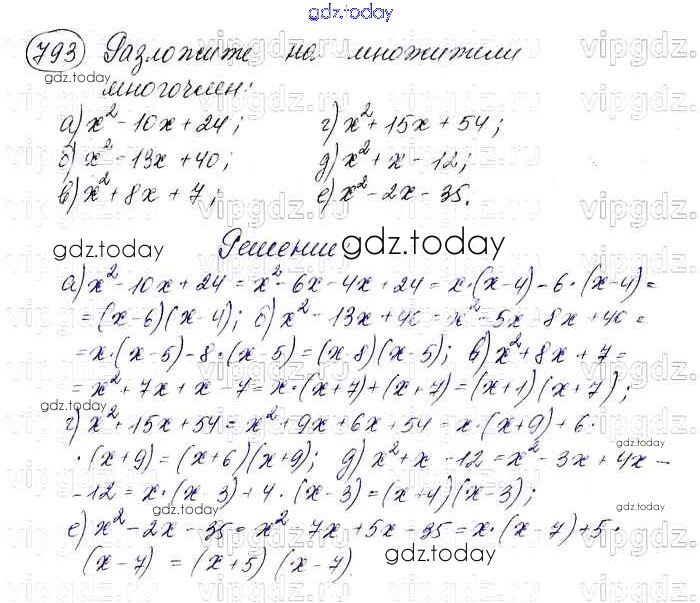 gdz.today
793 Разложите на множители
gdz.today
многочлен:
а) x² - 10x + 24; г) x² + 15x + 54;
б) x² - 13x + 40; д) x² + x - 12;
в) x² + 8x + 7; е) x² - 2x - 35.
gdz.today Решение gdz.today
а) x² - 10x + 24 = x² - 6x - 4x + 24 = x·(x-4) - 6·(x-4) =
= (x-6)(x-4); б) x² - 13x + 40 = x² - 5x - 8x + 40 =
= x·(x-5) - 8·(x-5) = (x-8)(x-5); в) x² + 8x + 7 =
= x² + 7x + x - 7 = x·(x+7) + (x+7) = (x+1)(x+7);
gdz.today
г) x² + 15x + 54 = x² + 9x + 6x + 54 = x·(x+9) + 6·
gdz.today
·(x+9) = (x+6)(x+9); д) x² + x - 12 = x² - 3x + 4x -
- 12 = x·(x 3) + 4·(x-3) = (x+4)(x-3);
gdz.today
е) x² - 2x - 35 = x² - 7x + 5x - 35 = x·(x-7) + 5·
gdz.today
(x-7) = (x+5)(x-7)
vipgdz.ru